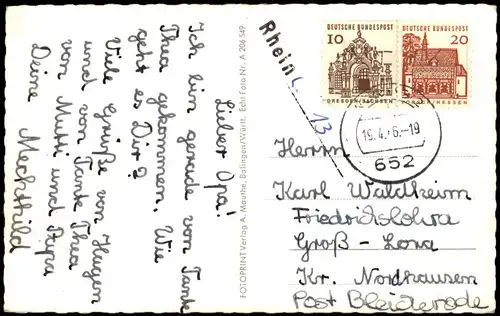 Lieber Opa!
Ich bin gerade von Tante
Thea gekommen. Wie
geht es Dir?
Viele Grüße von Hagen
und von Tante Thea
von Mutti und Papa
Deine Mechthild
FOTOPRINT Verlag A. Mauthe, Balingen/Württ. Echt Foto Nr. A 206 549
Rhein
13
DEUTSCHE BUNDESPOST
10
DRESDEN/SACHSEN
DEUTSCHE BUNDESPOST
20
LORSCH/HESSEN
19.4.76.-19
652
Herrn
Karl Waldheim
Friedrichslohra
Groß-Lora
Kr. Nordhausen
Post Bleicherode